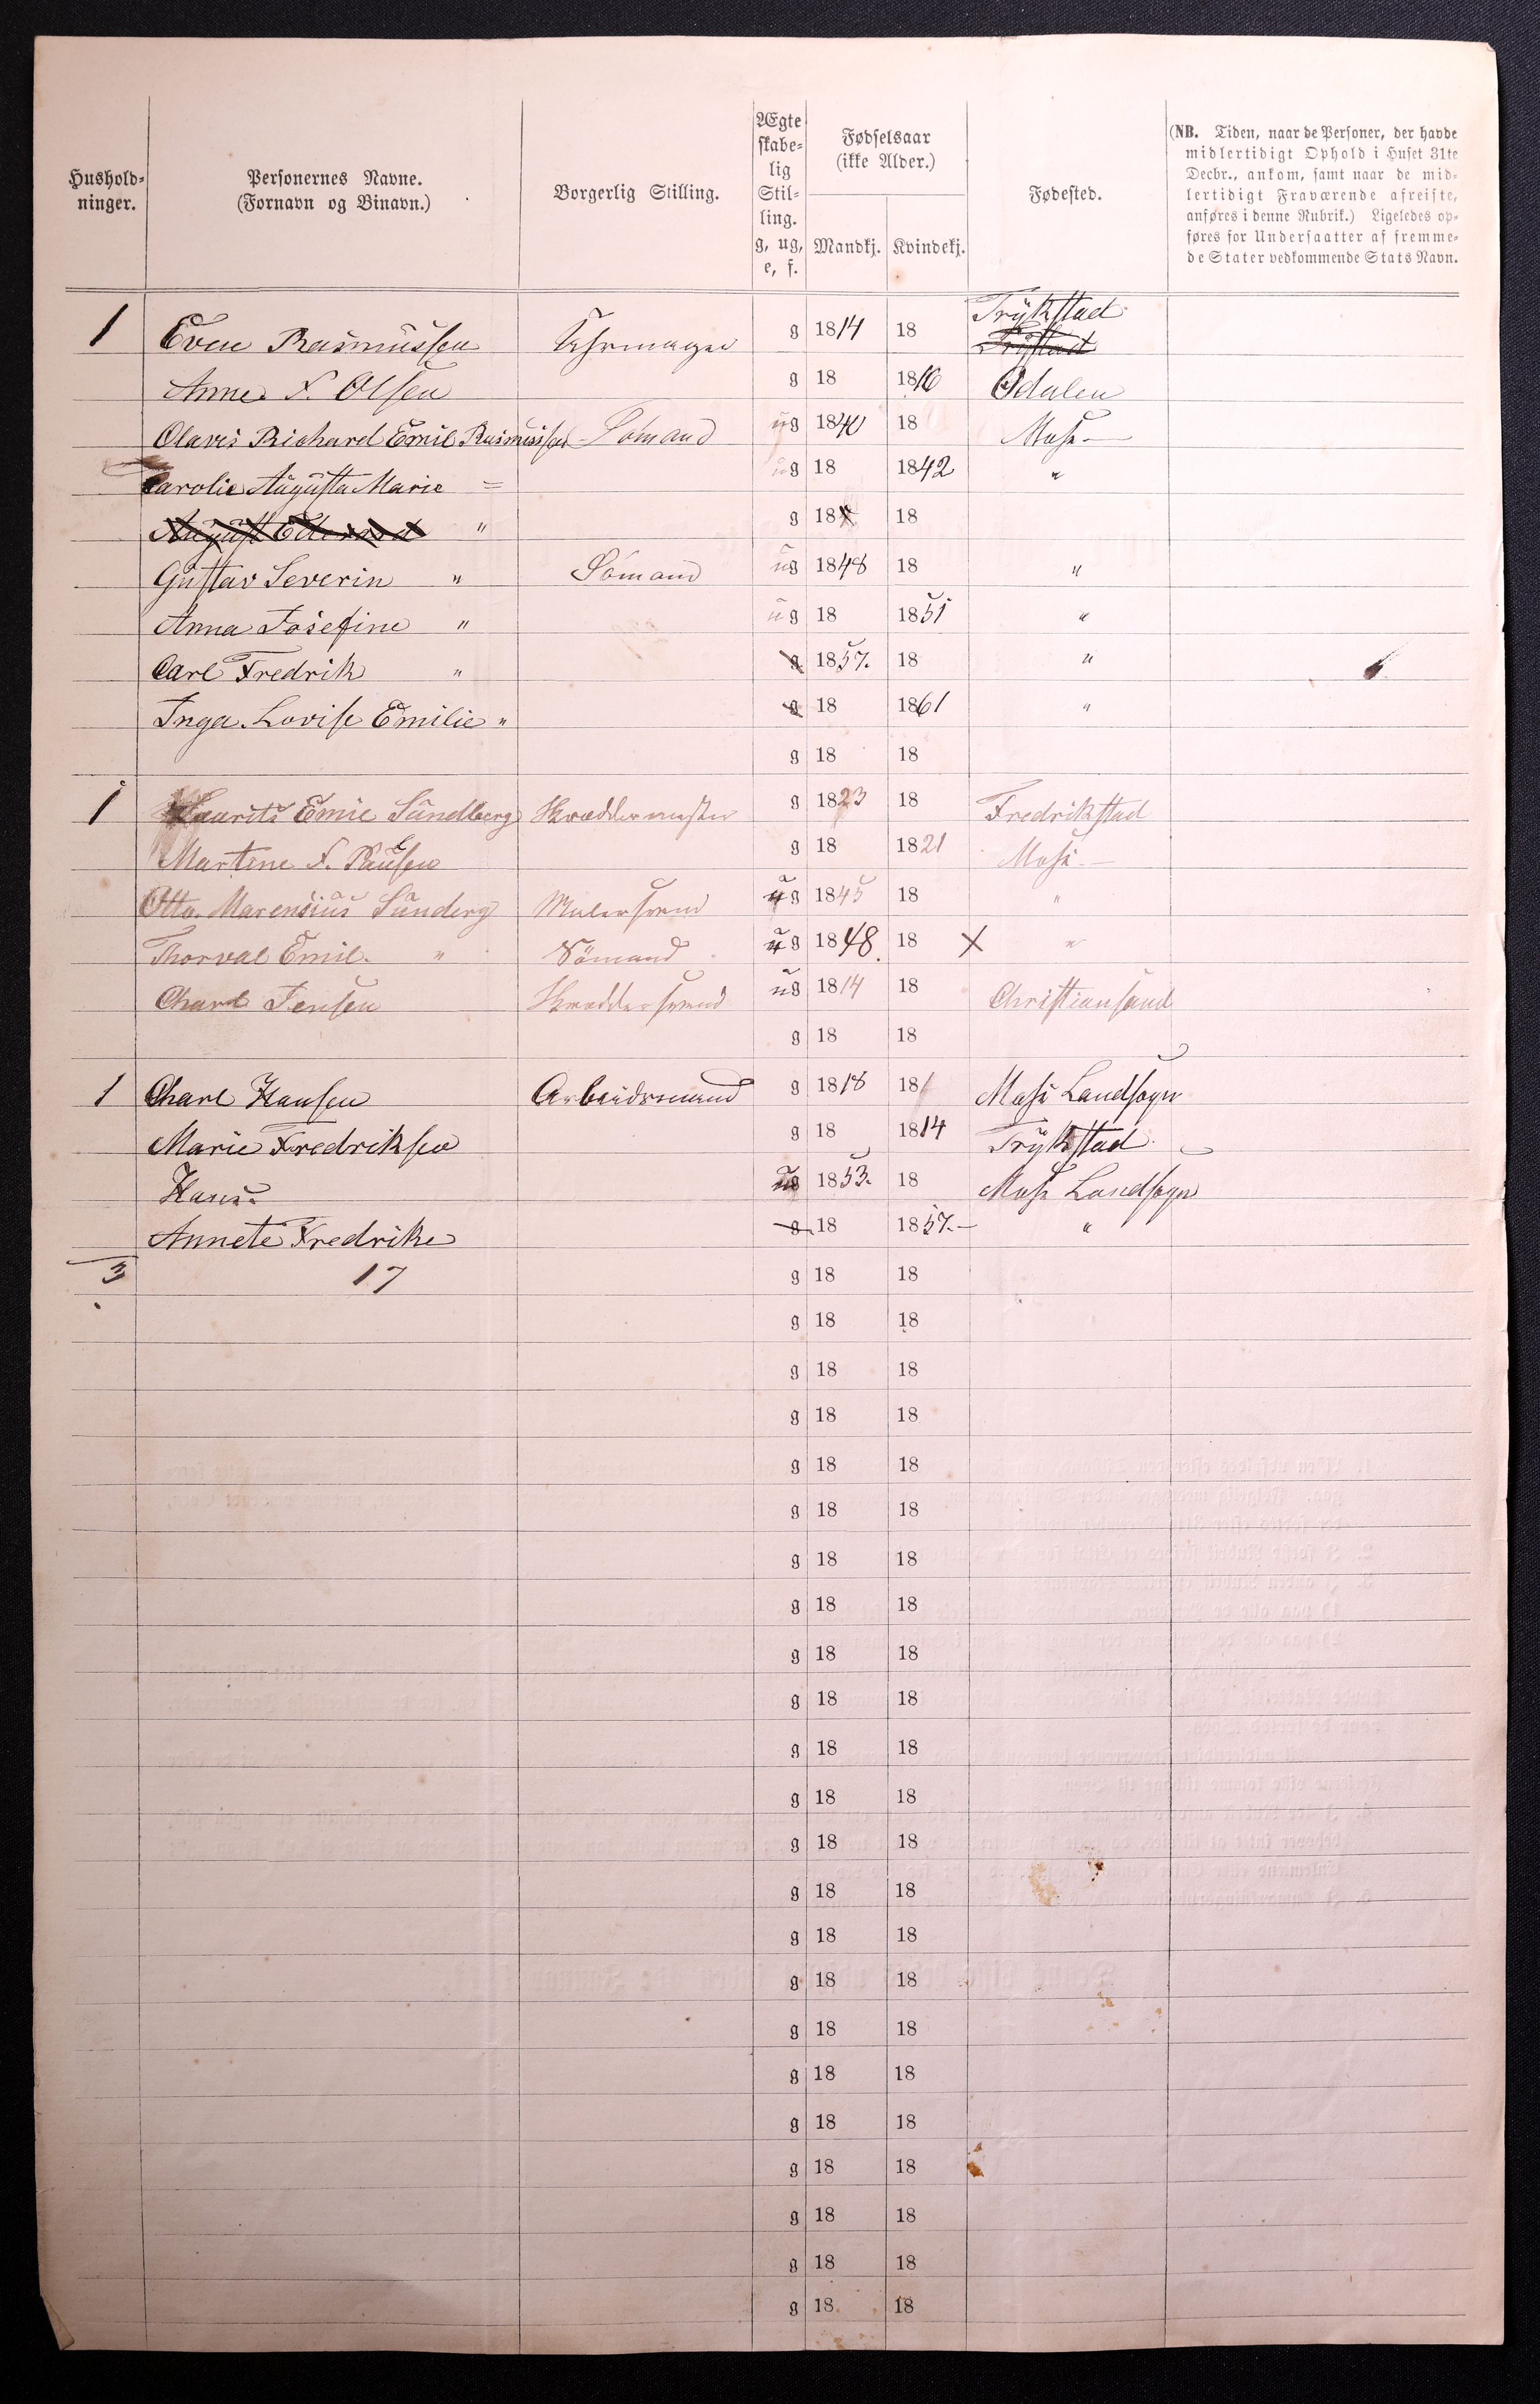 Hushold-ninger. | Personernes Navne. (Fornavn og Binavn.) | Borgerlig Stilling. | Ægteskabe-lig Stil-ling. g, ug, e, f. | Fødselsaar (ikke Alder.) Mandkj. Kvindekj. | Fødested. | (NB. Tiden, naar de Personer, der havde midlertidigt Ophold i Huset 31te Decbr., ankom, samt naar de mid-lertidigt Fraværende afreiste, anføres i denne Rubrik.) Ligeledes op-føres for Undersaatter af fremme-de Stater vedkommende Stats Navn.
1 Even Rasmussen Uhrmager g 1814 18 Trykstad
Anne F. Olsen g 18 1816 Odalen
Olavis Richard Emil Rasmussen Sömand ug 1840 18 Moss
Carolie Augusta Marie = ug 18 1842 "
August Edevard " g 18 18
Gustav Severin " Sömand ug 1848 18 "
Anna Josefine " ug 18 1851 "
Carl Fredrik " g 1857. 18 "
Inga Lovise Emilie " g 18 1861 "
g 18 18
1 Laurits Emil Sundberg Skræddermester g 1823 18 Fredrikstad
Martine F. Paulsen g 18 1821 Moss
Otto Marensius Sunderg Malersvend ug 1845 18 "
Thorval Emil. " Sömand ug 1848. 18 X "
Charl Jensen Skræddersvend ug 1814 18 Christiansand
g 18 18
1 Charl Hansen Arbeidsmand g 1818 181 Moss Landsogn
Marie Fredriksen g 18 1814 Trykstad
Hans. ug 1853. 18 Moss Landsogn
Annete Fredrike g 18 1857.- "
3 17 g 18 18
g 18 18
g 18 18
g 18 18
g 18 18
g 18 18
g 18 18
g 18 18
g 18 18
g 18 18
g 18 18
g 18 18
g 18 18
g 18 18
g 18 18
g 18 18
g 18 18
g 18 18
g 18 18
g 18 18
g 18 18
g 18 18
g 18 18